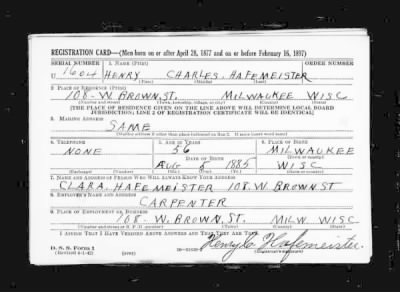 REGISTRATION CARD—(Men born on or after April 28, 1877 and on or before February 16, 1897)
SERIAL NUMBER 1. NAME (Print) ORDER NUMBER
U 1604 HENRY CHARLES HAFEMEISTER
(First) (Middle) (Last)
2. PLACE OF RESIDENCE (Print)
108-W. BROWN.ST. MILWAUKEE WISC
(Number and street) (Town, township, village, or city) (County) (State)
[THE PLACE OF RESIDENCE GIVEN ON THE LINE ABOVE WILL DETERMINE LOCAL BOARD
JURISDICTION; LINE 2 OF REGISTRATION CERTIFICATE WILL BE IDENTICAL]
3. MAILING ADDRESS
SAME
(Mailing address if other than place indicated on line 2. If same insert word same)
4. TELEPHONE 5. AGE IN YEARS 6. PLACE OF BIRTH
NONE 56 MILWAUKEE
DATE OF BIRTH
AUG 8 1885 WISC
7. NAME AND ADDRESS OF PERSON WHO WILL ALWAYS KNOW YOUR ADDRESS
CLARA HAFEMEISTER 108.W.BROWN.ST
8. EMPLOYER'S NAME AND ADDRESS
CARPENTER
9. PLACE OF EMPLOYMENT OR BUSINESS
108. W. BROWN.ST. MILW. WISC
(Number and street or R. F. D. number) (Town) (County) (State)
I AFFIRM THAT I HAVE VERIFIED ABOVE ANSWERS AND THAT THEY ARE TRUE.
D. S. S. Form 1
(Revised 4-1-42)
Henry C Hafemeister
(Registrant's signature)